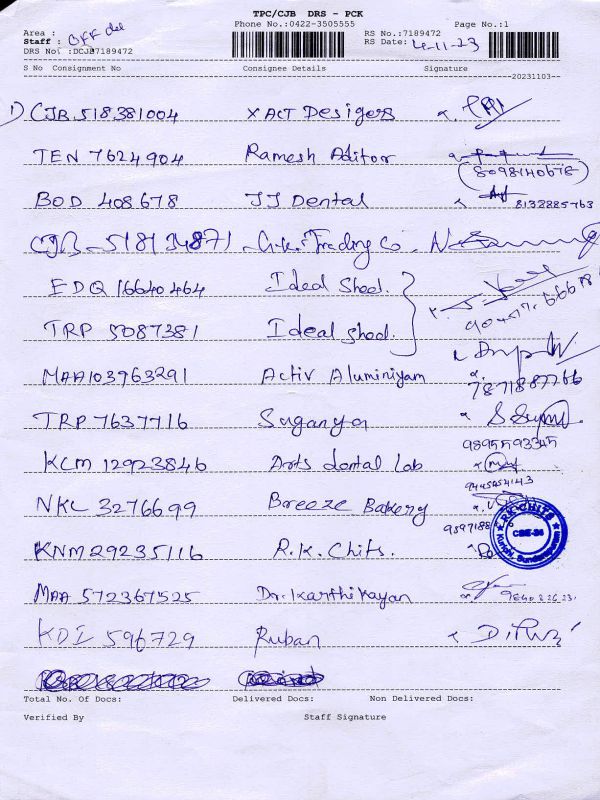 TPC/CJB DRS - PCK
Phone No.:0422-3505555 Page No.:1
Area : RS No.:7189472
Staff : OFF del RS Date: 4-11-23
DRS No: :DCJB7189472
S No Consignment No Consignee Details Signature
20231103
1) CJB 518381004 XACT Desigers
TEN 7624904 Ramesh Aditor
8098140678
BOD 408678 JJ Dental 8132885763
CJB - 518134871 G.K. Trading Co
EDQ 16640464 Ideal Shed.
TRP 5087381 Ideal Shed.
MAA103963291 Activ Aluminiyam
7871887766
TRP 7637716 Suganya
9895593345
KCM 12923846 Arts dental Lab
9445454143
NKL 3276699 Breeze Bakery
9597188
KNM29235116 R.K. Chits.
R.K. CHITS
CBE-24
Kurichi, Sundarapuram
MAA 572367525 Dr. Karthikayan
KDI 596729 Ruban
Total No. Of Docs: Delivered Docs: Non Delivered Docs:
Verified By Staff Signature